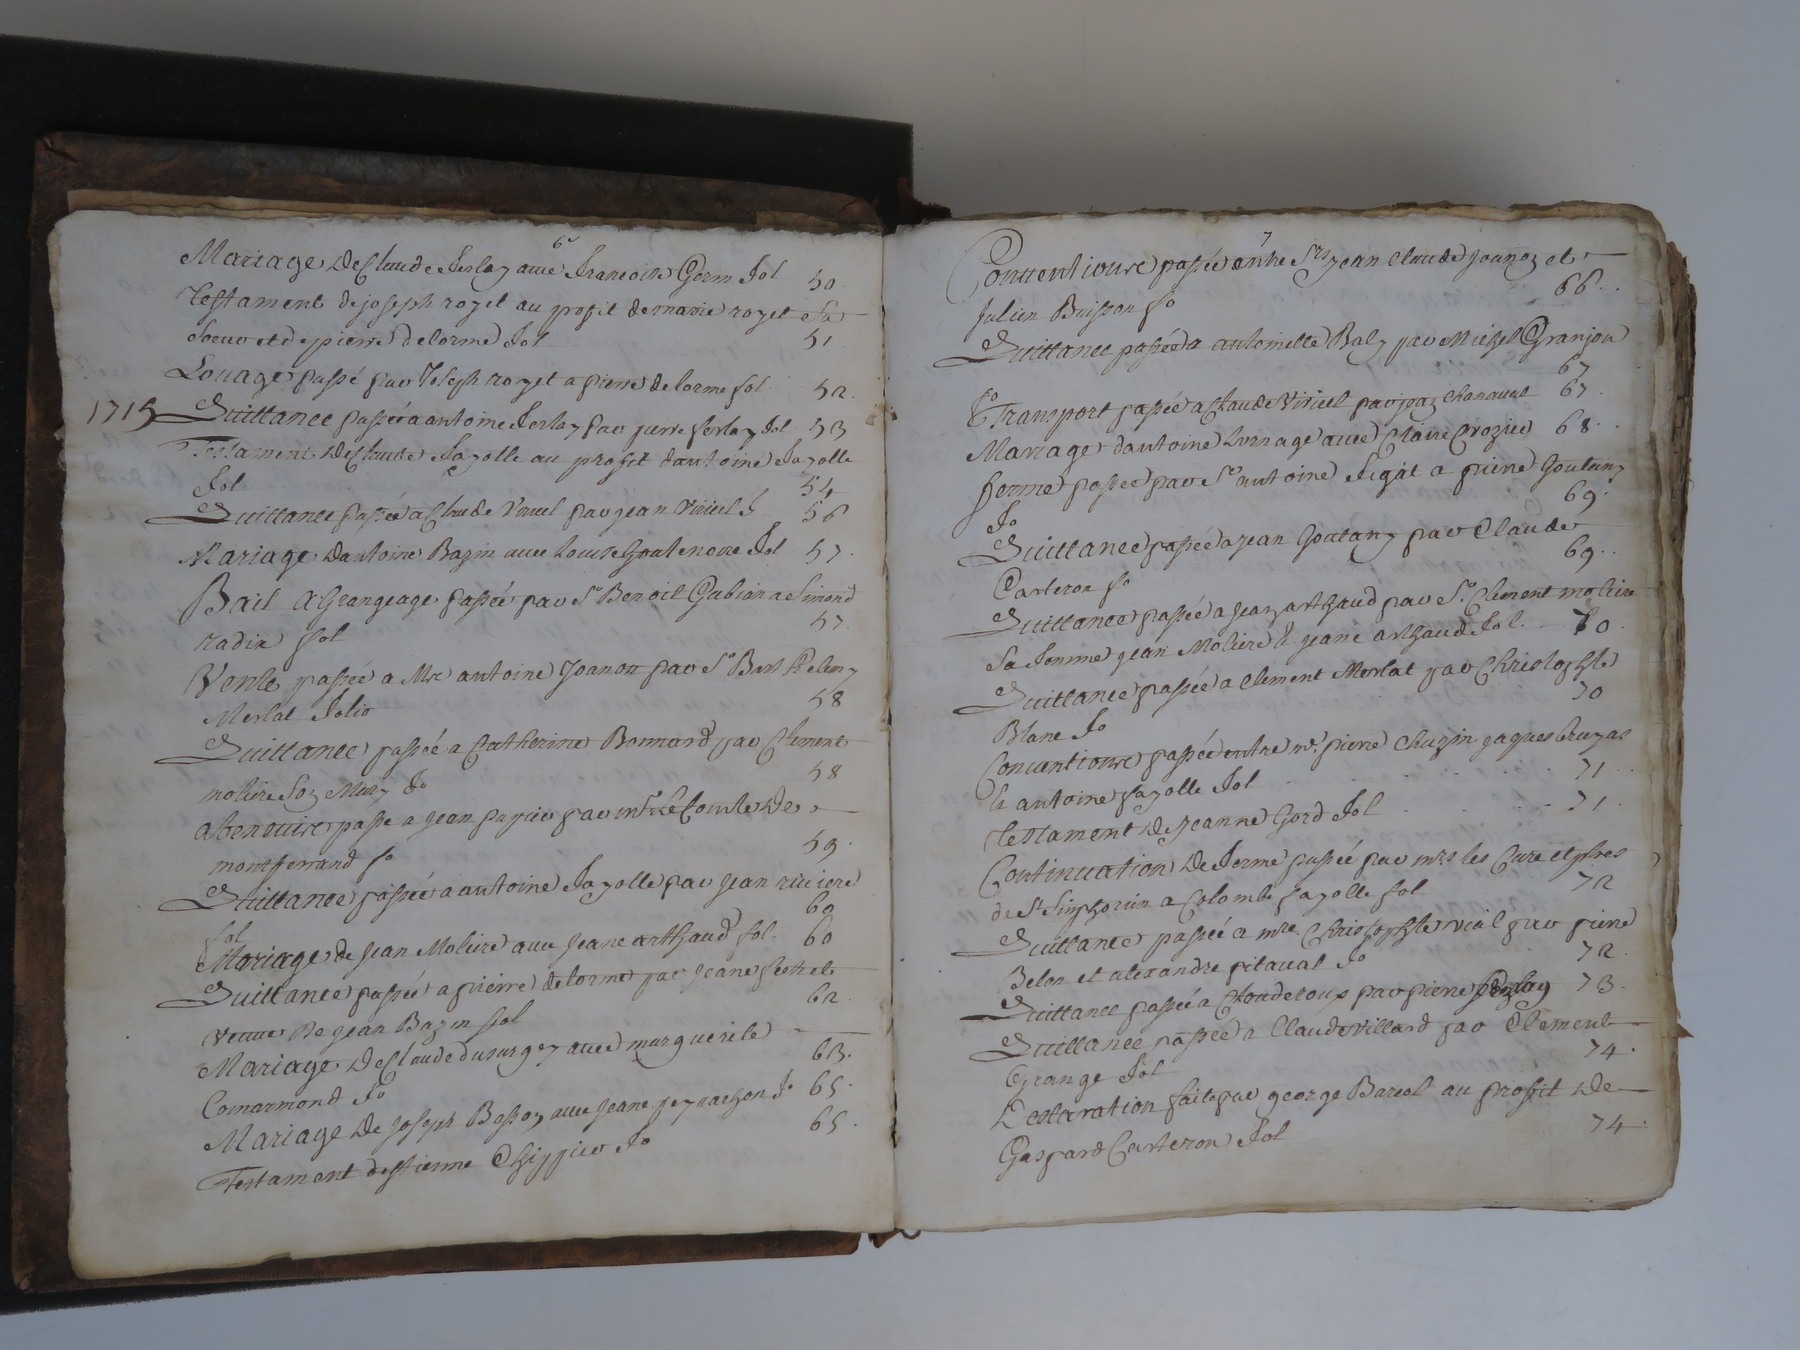 6
Mariage de Claude ferlay avec francoise Germ fol 50
Testament de joseph royet au profit de marie royet sa
Soeur et de pierre delorme fol 51
Louage passé par Joseph royet a pierre delorme fol 52
1715 Quittance passée a antoine ferlay par pierre ferlay fol 53
Testament de Claude fayolle au profit dantoine fayolle
fol 54
Quittance passée a Claude Viricel par jean Viricel f 56
Mariage dantoine Bazin avec Louise Goutenoire fol 57
Bail a Grangeage passée par Sr Benoit Gubian a Simond
radix fol 57
Vente passée a Mre antoine Joanon par Sr
Merlat folio 58
Quittance passée a Catherine Bonnard par Clement
moliere Soy Mary fo 58
abenevise passe a jean papier par le Comte de
montferrand fo 59
Quittance passée a antoine fayolle par jean riviere
fol 60
Mariage de jean Moliere avec jeane arthaud fol 60
Quittance passée a pierre delorme par jeane
veuve de jean Bazin fol 62
Mariage de Claude dusurgey avec marguerite
Comarmond fo 63
Mariage de joseph Bessoy avec jeane peyrachon fo 65
Testament destienne Chippier fo 65
7
Conventions passée entre Srs jean Claude joanoz et
julien Buisson fo 66
Quittance passée a antoinette Baly par Michel Granjon
fo 67
Transport passée a Claude Viricel par jean Chanavat 67
Mariage dantoine Lurnage avec Claire Crozier 68
ferme passée par Sr antoine figat a pierre Goutany
fo 69
Quittance passée a jean Goutany par Claude
Carteron fo 69
Quittance passée a jean arthaud par Sr Clement moliere
Sa femme jean Moliere & jeane arthaud fol 70
Quittance passée a Clement Merlat par Christophle
Blanc fo 70
Conventions passée entre mr pierre Chuzin jaques bruyas
& antoine fayolle fol 71
Testament de jeanne Gord fol 71
Continuation de ferme passée par mrs les Curé et pbres
de St Simphorien a Colombe fayolle fol 72
Quittance passée a mre Christophle vial par pierre
Belon et alexandre pitaval fo 72
Quittance passée a Claude tous par pierre ferlay 73
Quittance passée a Claude Villard par Clement
Grange fol 74
Declaration faite par george Bareol au proffit de
Gaspard Carteron fol 74